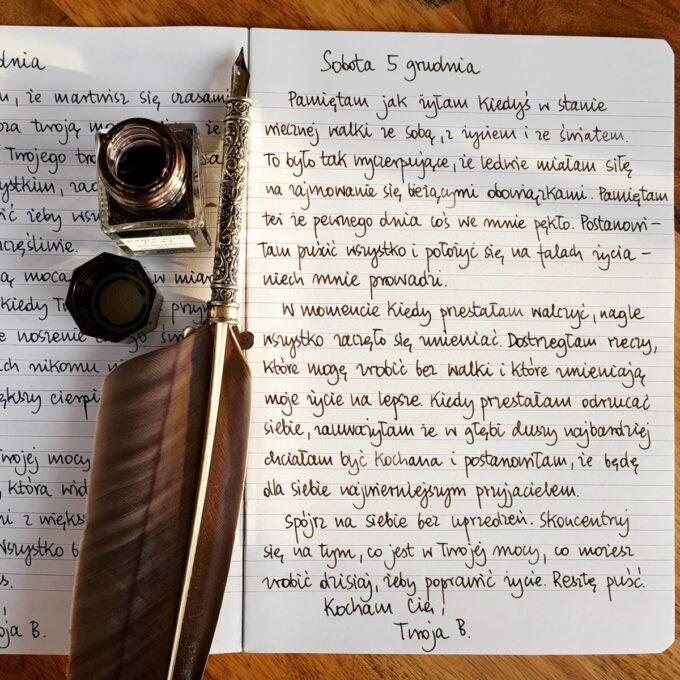 dnia
m, że martwisz się czasam
oza twoją że
Twojego
ystkim,
ić żeby
zczęśliwie.
ą moca w miar
Kiedy
e noszenie
ch nikomu
iększy
Twojej mocy
, która
mi z
Wszystko
s.
oja B.
Sobota 5 grudnia
Pamiętam jak żyłam kiedyś w stanie
wiecznej walki ze sobą, z życiem i ze światem.
To było tak wyczerpujące, że ledwie miałam siłę
na zajmowanie się bieżącymi obowiązkami. Pamiętam
też że pewnego dnia coś we mnie pękło. Postanowi-
łam puścić wszystko i położyć się na falach życia –
niech mnie prowadzi.
W momencie kiedy przestałam walczyć, nagle
wszystko zaczęło się zmieniać. Dostrzegłam rzeczy,
które mogę zrobić bez walki i które zmieniają
moje życie na lepsze. Kiedy przestałam odrzucać
siebie, zauważyłam że w głębi duszy najbardziej
chciałam być kochana i postanowiłam, że będę
dla siebie najwierniejszym przyjacielem.
Spójrz na siebie bez uprzedzeń. Skoncentruj
się na tym, co jest w Twojej mocy, co możesz
zrobić dzisiaj, żeby poprawić życie. Resztę puść.
Kocham Cię!
Twoja B.